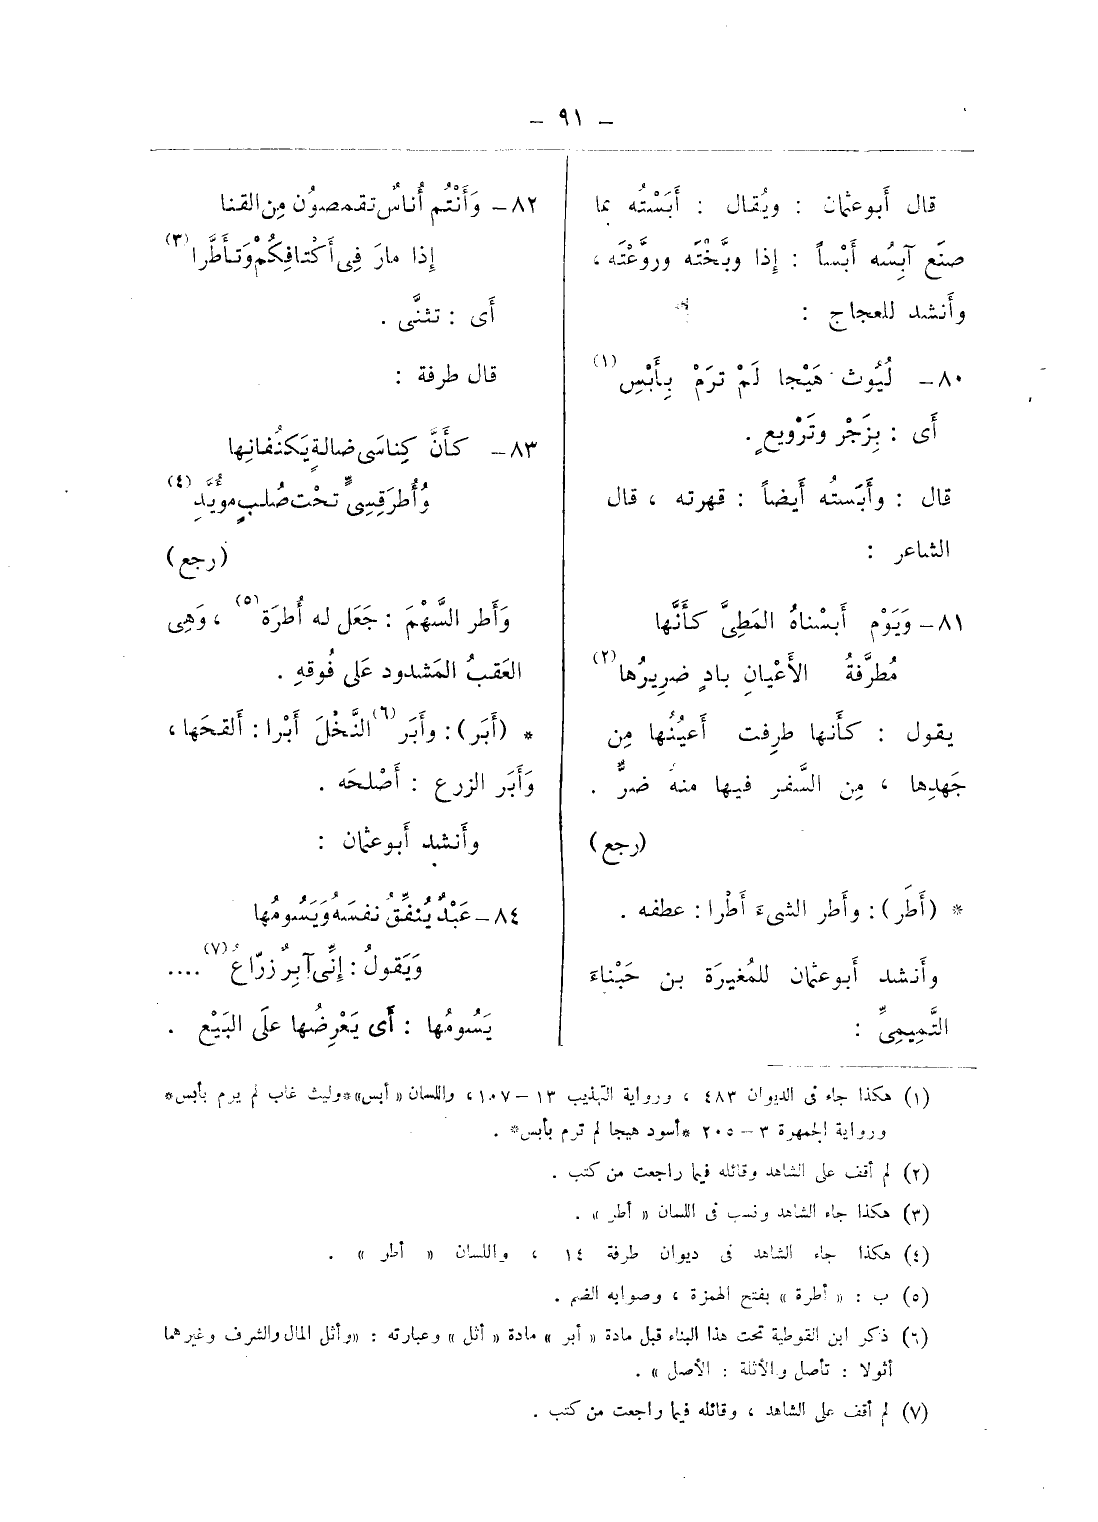 – ٩١ –
قال أبو عثمان : ويُقال : أَبَسْتُه بما
صنَع آبِسُه أَبْساً : إذا وبَّخْتَه وروَّعْتَه ،
وأَنشد للعجاج :
٨٠ – لُيُوث هَيْجا لَمْ تَرَمْ بِأَبْسِ (١)
أَى : بِزَجْر وتَرْويعٍ .
قال : وأَبَستُه أَيضاً : قهرته ، قال
الشاعر :
٨١ – وَيَوْم أَبسْناهُ المَطِىَّ كأَنَّها
مُطرَّفةُ الأَعْيانِ بادٍ ضريرُها (٢)
يقول : كأَنها طرِفت أَعيُنُها مِن
جَهدِها ، مِن السَّفر فيها منهُ ضرٌّ .
(رجع)
* (أَطَر) : وأَطر الشىءَ أَطْرا : عطفه .
وأَنشد أَبو عثمان للمُغيرَة بن حَبْناءَ
التَّمِيمِىِّ :
٨٢ – وَأَنْتُم أُناسٌ تقمصوُن مِن القنا
إذا مارَ فِى أَكْتافِكُمْ وَتأَطَّرا (٣)
أَى : تثنَّى .
قال طرفة :
٨٣ – كأَنَّ كِناسَى ضالةٍ يَكنُفانِها
وأُطرَ قِسِىٍّ تحْت صُلبٍ مؤيَّدِ (٤)
(رجع)
وَأَطر السَّهْمَ : جَعَل له أُطرَة (٥) ، وَهِى
العَقبُ المَشدود عَلى فُوقهِ .
* (أَبَر) : وأَبَر (٦) النَّخْلَ أَبْرا : أَلقحَها ،
وَأَبَر الزرع : أَصْلحَه .
وأَنشد أَبو عثمان :
٨٤ – عَبْدٌ يُنَفِّقُ نفسَهُ وَيَسُومُها
وَيَقولُ : إنِّى آبِرٌ زرّاعُ (٧) ....
يَسُومُها : أَى يَعْرِضُها علَى البَيْع .
(١) هكذا جاء فى الديوان ٤٨٣ ، ورواية التهذيب ١٣ – ١٠٧ ، واللسان « أبس » * وليث غاب لم يرم بأبس *
ورواية الجمهرة ٣ – ٢٠٥ * أسود هيجا لم ترم بأبس * .
(٢) لم أقف على الشاهد وقائله فيما راجعت من كتب .
(٣) هكذا جاء الشاهد ونسب فى اللسان « أطر » .
(٤) هكذا جاء الشاهد فى ديوان طرفة ١٤ ، واللسان « أطر » .
(٥) ب : « أطرة » بفتح الهمزة ، وصوابه الضم .
(٦) ذكر ابن القوطية تحت هذا البناء قبل مادة « أبر » مادة « أثل » وعبارته : « وأثل المال والشرف وغيرهما
أثولا : تأصل والأثلة : الأصل » .
(٧) لم أقف على الشاهد ، وقائله فيما راجعت من كتب .